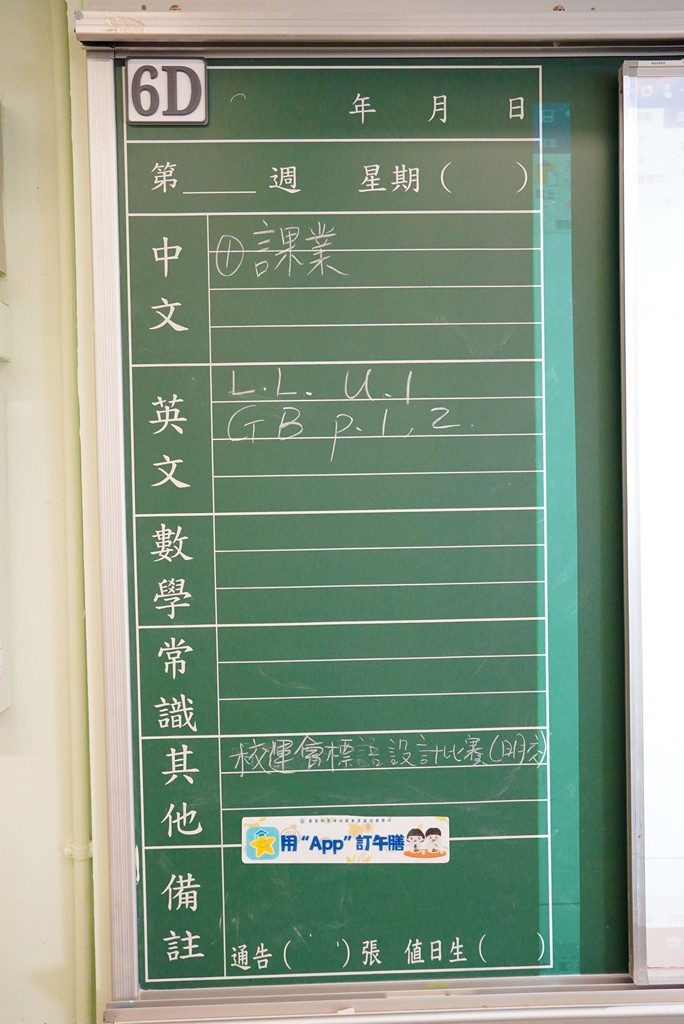 6D
年 月 日
第____週 星期( )
中文
①課業
英文
L.L. U.1
GB p.1,2.
數學
常識
其他
校運會標語設計比賽(
用“App”訂午膳
備註
通告( )張 值日生( )